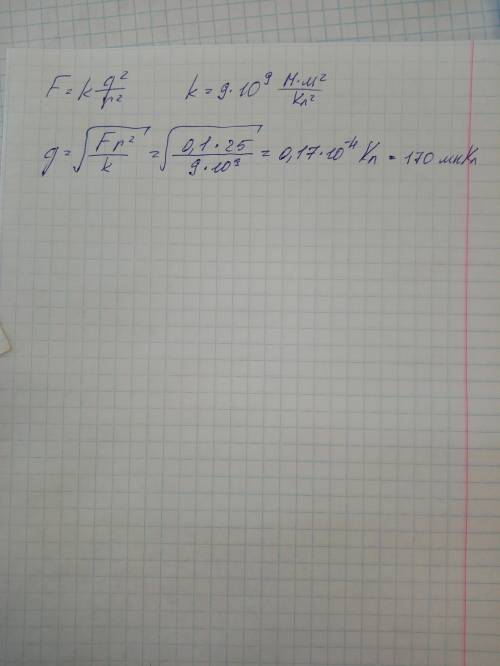 F = k q²/r² k = 9·10⁹ Н·м²/Кл²
q = √(Fr²/k) = √(0,1·25/9·10⁹) = 0,17·10⁻⁴ Кл = 170 мкКл